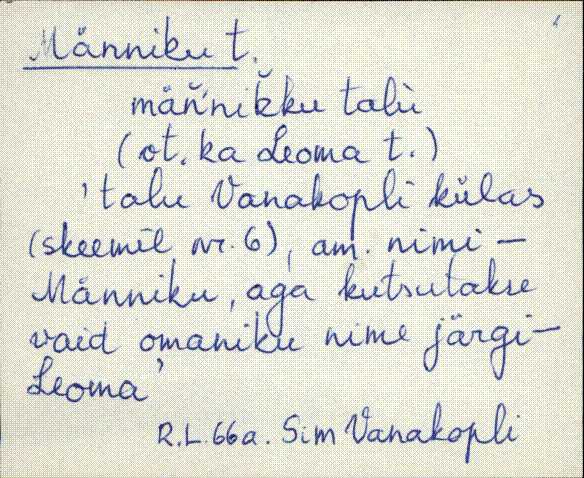 Männiku t.
mäńnikku talù
(vt. ka Leoma t.)
'talu Vanakopli külas
(skeemil nr. 6), am. nimi —
Männiku, aga kutsutakse
vaid omaniku nime järgi —
Leoma'
R.L. 66a. Sim Vanakopli